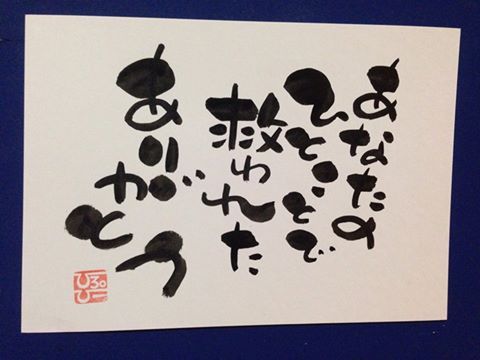 あなたの
ひとことで
救われた
ありがとう